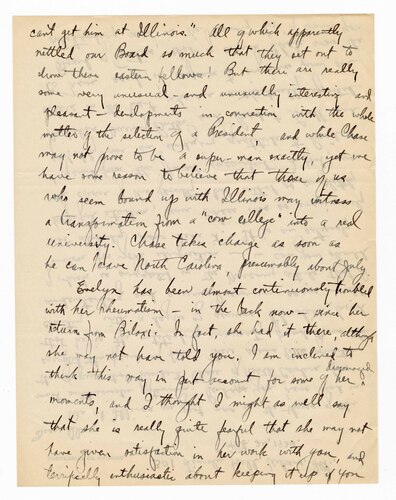 can't get him at Illinois." All of which apparently
nettled our Board so much that they set out to
show these eastern fellows! But there are really
some very unusual - and unusually interesting and
pleasant - developments in connection with the whole
matter of the selection of a President, and while Chase
may not prove to be a super-man exactly, yet we
have some reason to believe that those of us
who seem bound up with Illinois may witness
a transformation from a "cow college" into a real
university. Chase takes charge as soon as
he can leave North Carolina, presumably about July.
Evelyn has been almost continuously troubled
with her rheumatism - in the back now - since her
return from Biloxi. In fact, she had it there, although
she may not have told you. I am inclined to
think this may in part account for some of her discouraged
moments, and I thought I might as well say
that she is really quite fearful that she may not
have given satisfaction in her work with you, and
terrifically enthusiastic about keeping it up if you